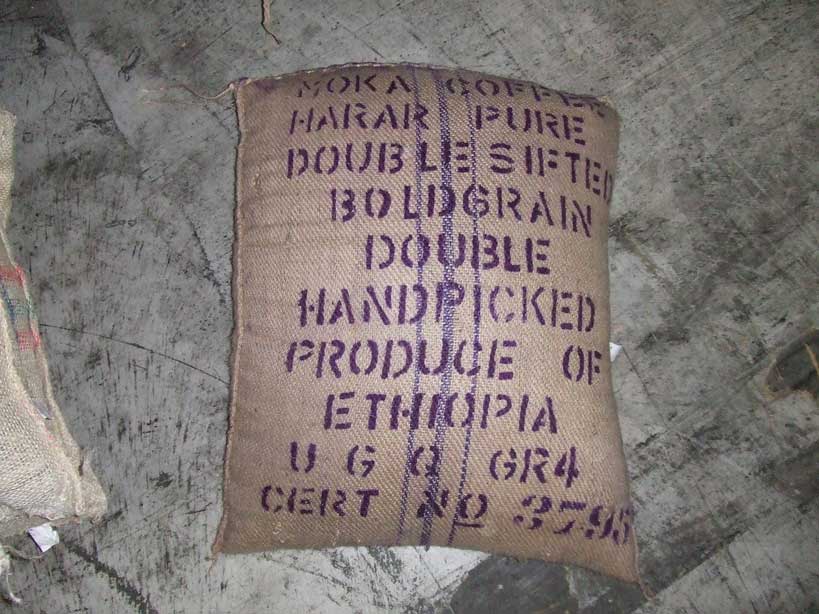 MOKA COFFEE
HARAR PURE
DOUBLE SIFTED
BOLDGRAIN
DOUBLE
HANDPICKED
PRODUCE OF
ETHIOPIA
U G Q GR4
CERT NO 3795